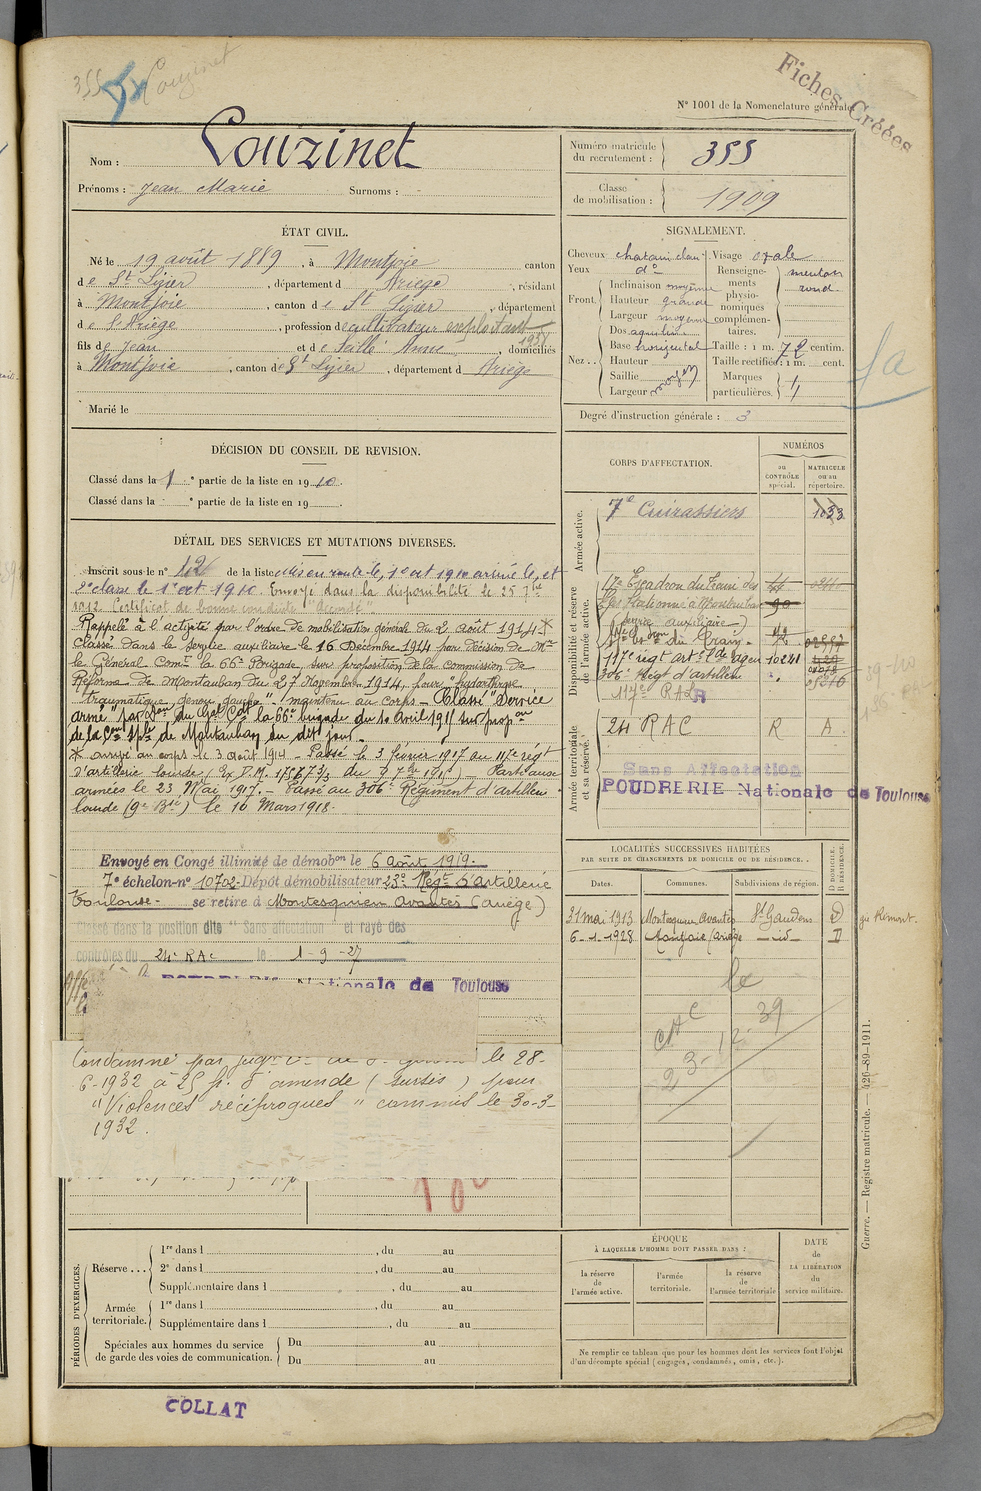 355 Couzinet
Fiches Créées
N° 1001 de la Nomenclature générale
Nom : Couzinet
Prénoms : Jean Marie Surnoms : -
Numéro matricule du recrutement : 355
Classe de mobilisation : 1909
ÉTAT CIVIL.
Né le 19 août 1889, à Montjoie canton
de St Lizier, département d Ariège, résidant
à Montjoie, canton de St Lizier, département
de l'Ariège, profession de cultivateur exploitant
fils de Jean et de Anne, domiciliés
à Montjoie, canton de St Lizier, département d Ariège
Marié le
SIGNALEMENT.
Cheveux chatain clair Visage ovale
Yeux d°
Front. Inclinaison moyenne
Hauteur grande
Largeur moyenne
Nez. Dos
Base horizontal
Hauteur
Saillie moyen
Largeur
Renseignements physionomiques complémentaires. menton rond
Taille : 1 m. 72 centim.
Taille rectifiée : 1 m. cent.
Marques particulières.
Degré d'instruction générale : 3
DÉCISION DU CONSEIL DE REVISION.
Classé dans la 1e partie de la liste en 1910.
Classé dans la e partie de la liste en 19
DÉTAIL DES SERVICES ET MUTATIONS DIVERSES.
Inscrit sous le n° 12 de la liste mis en route le 1e oct 1910 arrivé le, et
2e classe le 1e oct 1910. Envoyé dans la disponibilité le 25 7bre
1912. Certificat de bonne conduite "Accordé"
Rappelé à l'activité par l'ordre de mobilisation générale du 2 août 1914 *
Classé dans le service auxiliaire le 16 Décembre 1914 par décision de Mr
le Général Comt la 66e Brigade, sur proposition de la commission de
Réforme de Montauban du 27 Novembre 1914, pour "hydarthrose
traumatique genou gauche" maintenu au corps - Classé "Service
armé" par don du Gal Cdt la 66e brigade du 10 Avril 1915 sur propon
de la Con de Montauban du dit jour.
* arrivé au corps le 3 août 1914 - Passé le 3 février 1917 au 117e régt
d'artillerie lourde - Parti aux
armées le 23 Mai 1917. - Passé au 306e Régiment d'artillerie
lourde (9e Bie) le 16 Mars 1918.
Envoyé en Congé illimité de démobon le 6 Août 1919.
7e échelon-n° 10702 Dépôt démobilisateur 23e Régt d'artillerie
Toulouse. se retire à Montesquieu Avantès (Ariège)
Classé dans la position dite "Sans affectation" et rayé des
contrôles du 24e RAC le 1-9-27
POUDRERIE Nationale de Toulouse
Condamné par le 28-
6-1932 à 25 f. d'amende (sursis) pour
"Violences réciproques" commis le 30-3-
1932.
CORPS D'AFFECTATION.
NUMÉROS
au CONTRÔLE spécial.
MATRICULE ou au répertoire.
Armée active.
7e Cuirassiers 1033
Disponibilité et réserve de l'armée active.
17e Escadron du Train des
Eqes Stationné à Montauban
(Service auxiliaire)
117e régt art lde 10241
306e Régt d'artillerie
117e RAL R
Armée territoriale et sa réserve.
24 RAC R A.
Sans Affectation
POUDRERIE Nationale de Toulouse
LOCALITÉS SUCCESSIVES HABITÉES
PAR SUITE DE CHANGEMENTS DE DOMICILE OU DE RÉSIDENCE.
Dates. Communes. Subdivisions de région. D DOMICILE. R RÉSIDENCE.
31 mai 1913 Montesquieu Avantès St Gaudens D
6-1-1928 Montjoie (Ariège) - id - D
CAC
23-12-39
PÉRIODES D'EXERCICES.
Réserve... 1re dans l , du au
2e dans l , du au
Supplémentaire dans l , du au
Armée territoriale. 1re dans l , du au
Supplémentaire dans l , du au
Spéciales aux hommes du service de garde des voies de communication. Du au
Du au
ÉPOQUE
À LAQUELLE L'HOMME DOIT PASSER DANS :
la réserve de l'armée active.
l'armée territoriale.
la réserve de l'armée territoriale
DATE de LA LIBÉRATION du service militaire.
Ne remplir ce tableau que pour les hommes dont les services font l'objet
d'un décompte spécial (engagés, condamnés, omis, etc.).
Guerre. — Registre matricule. — 426-89-1911.
COLLAT